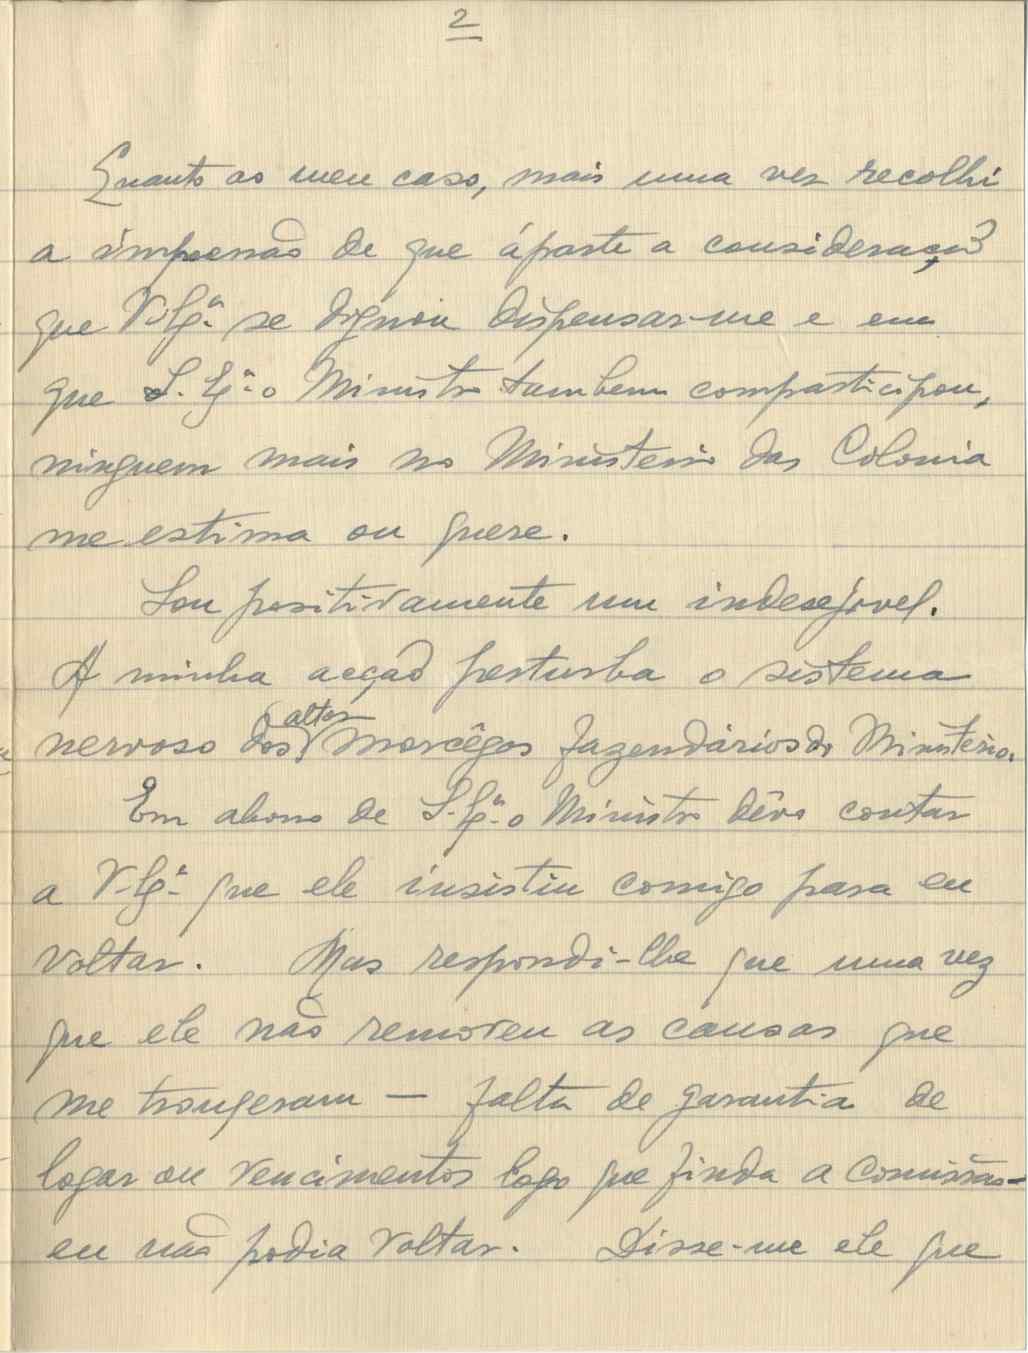 2
Quanto ao meu caso, mais uma vez recolhi
a impressão de que áparte a consideração
que V. Exª. se dignou dispensar-me e em
que S. Exª. o Ministro tambem comparticipou,
ninguem mais no Ministerio das Colonia
me estima ou quere.
Sou positivamente um indesejavel.
A minha acção perturba o sistema
nervoso dos altos morcêgos fazendários do Ministério.
Em abono de S. Exª. o Ministro dêvo contar
a V. Exª. que ele insistiu comigo para eu
voltar. Mas respondi-lhe que uma vez
que ele não removeu as causas que
me trougeram — falta de garantia de
logar ou vencimentos logo que finda a comissão —
eu não podia voltar. Disse-me ele que